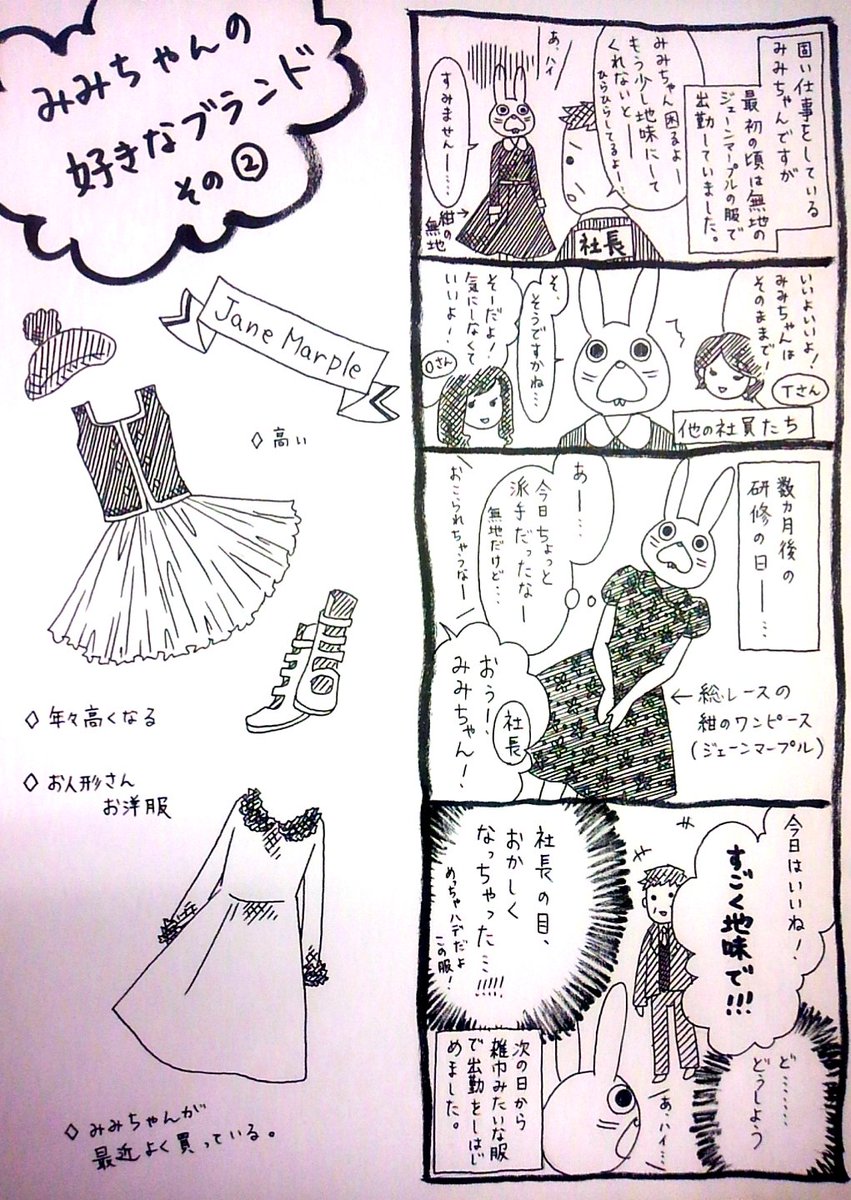 みみちゃんの
好きなブランド
その②
Jane Marple
◇高い
◇年々高くなる
◇お人形さん
お洋服
◇みみちゃんが
最近よく買っている。
固い仕事をしている
みみちゃんですが
最初の頃は無地の
ジェーンマープルの服で
出勤していました。
みみちゃん困るよー
もう少し地味にして
くれないとー
ひらひらしてるよー
あ、ハイ
すみませんー……
紺の
無地
社長
いいよいいよ!
みみちゃんは
そのままで!
Tさん
他の社員たち
そ、
そうですかね…
そーだよ!
気にしなくて
いいよ!
Oさん
数カ月後の
研修の日ー…
あー…
今日ちょっと
派手だったなー
無地だけど…
おこられちゃうなー
←総レースの
紺のワンピース
(ジェーンマープル)
おうー、
みみちゃん!
社長
今日はいいね!
すごく地味で!!!
ど………
どうしよう
社長の目、
おかしく
なっちゃった…!!!!!
めっちゃハデだよ
この服!
あ、ハイ…
次の日から
雑巾みたいな服
で出勤をしはじ
めました。